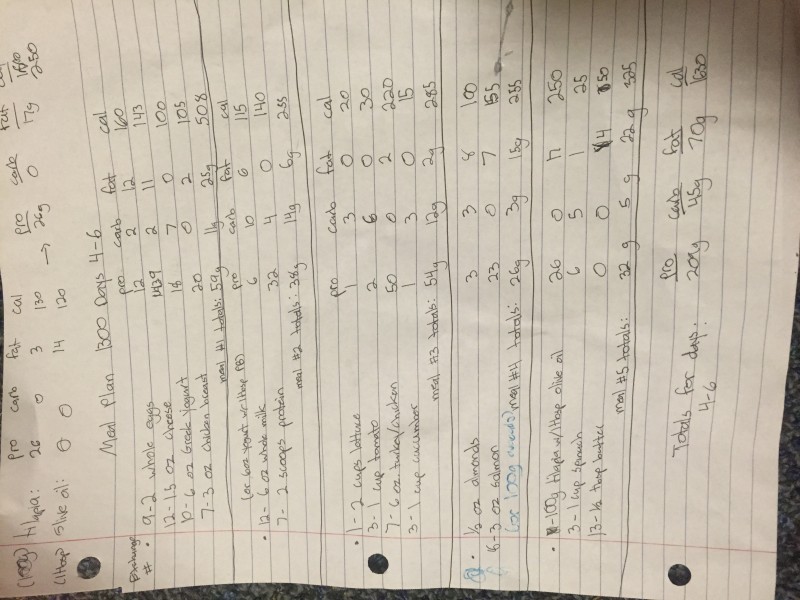 pro carb fat cal pro carb fat cal
(100g) tilapia: 26 0 3 130 → 26g 0 17g 250
(1tbsp) olive oil: 0 0 14 120
Meal Plan 1300 Days 4-6
Exchange # pro carb fat cal
• 9-2 whole eggs 12 2 12 160
12-1.5 oz cheese 2 11 143
10-6 oz Greek yogurt 18 7 0 100
7-3 oz chicken breast 20 0 2 105
meal #1 totals: 59g 11g 25g 508
pro carb fat cal
(or 6oz yogurt w/1tbsp PB) 6 10 6 115
• 12-6 oz whole milk
7-2 scoops protein 32 4 0 140
meal #2 totals: 38g 14g 6g 255
pro carb fat cal
• 1-2 cups lettuce 1 3 0 20
3-1 cup tomato 2 6 0 30
7-6 oz. turkey/chicken 50 0 2 220
3-1 cup cucumber 1 3 0 15
meal #3 totals: 54g 12g 2g 285
• ½ oz almonds 3 3 8 100
8-3 oz salmon 23 0 7 155
(or 100g meal #4 totals: 26g 3g 15g 255
• 100g tilapia w/1tbsp olive oil 26 0 17 250
3-1 cup spinach 6 5 1 25
13-½ tbsp butter 0 0 4 50
meal #5 totals: 32g 5g 22g 325
pro carb fat cal
Totals for days: 209g 45g 70g 1630
4-6